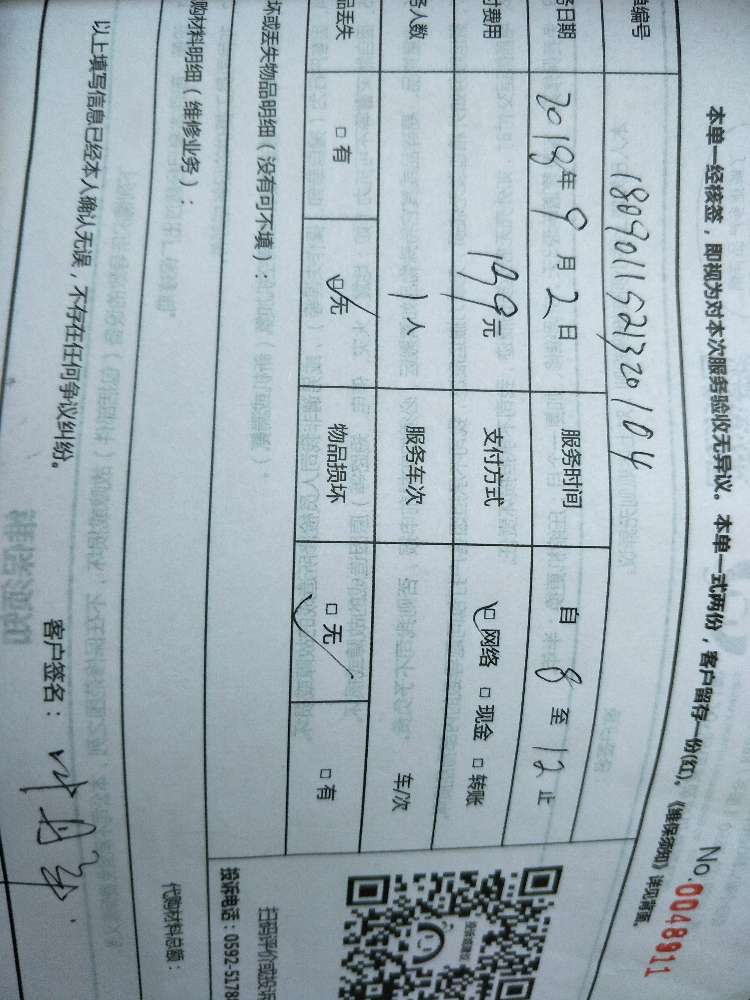 本单一经核签，即视为对本次服务验收无异议。本单一式两份，客户留存一份(红)。《维保须知》详见背面。
No.0048911
单编号 1809011521320104
务日期 2018年9月2日 服务时间 自8至12止
付费用 199元 支付方式 ☑网络 □现金 □转账
务人数 1人 服务车次 车/次
品丢失 □有 ☑无 物品损坏 ☑无 □有
坏或丢失物品明细（没有可不填）：
购材料明细（维修业务）：
代购材料总额：
扫码评价或投诉
投诉电话：0592-5178
以上填写信息已经本人确认无误，不存在任何争议纠纷。
客户签名：